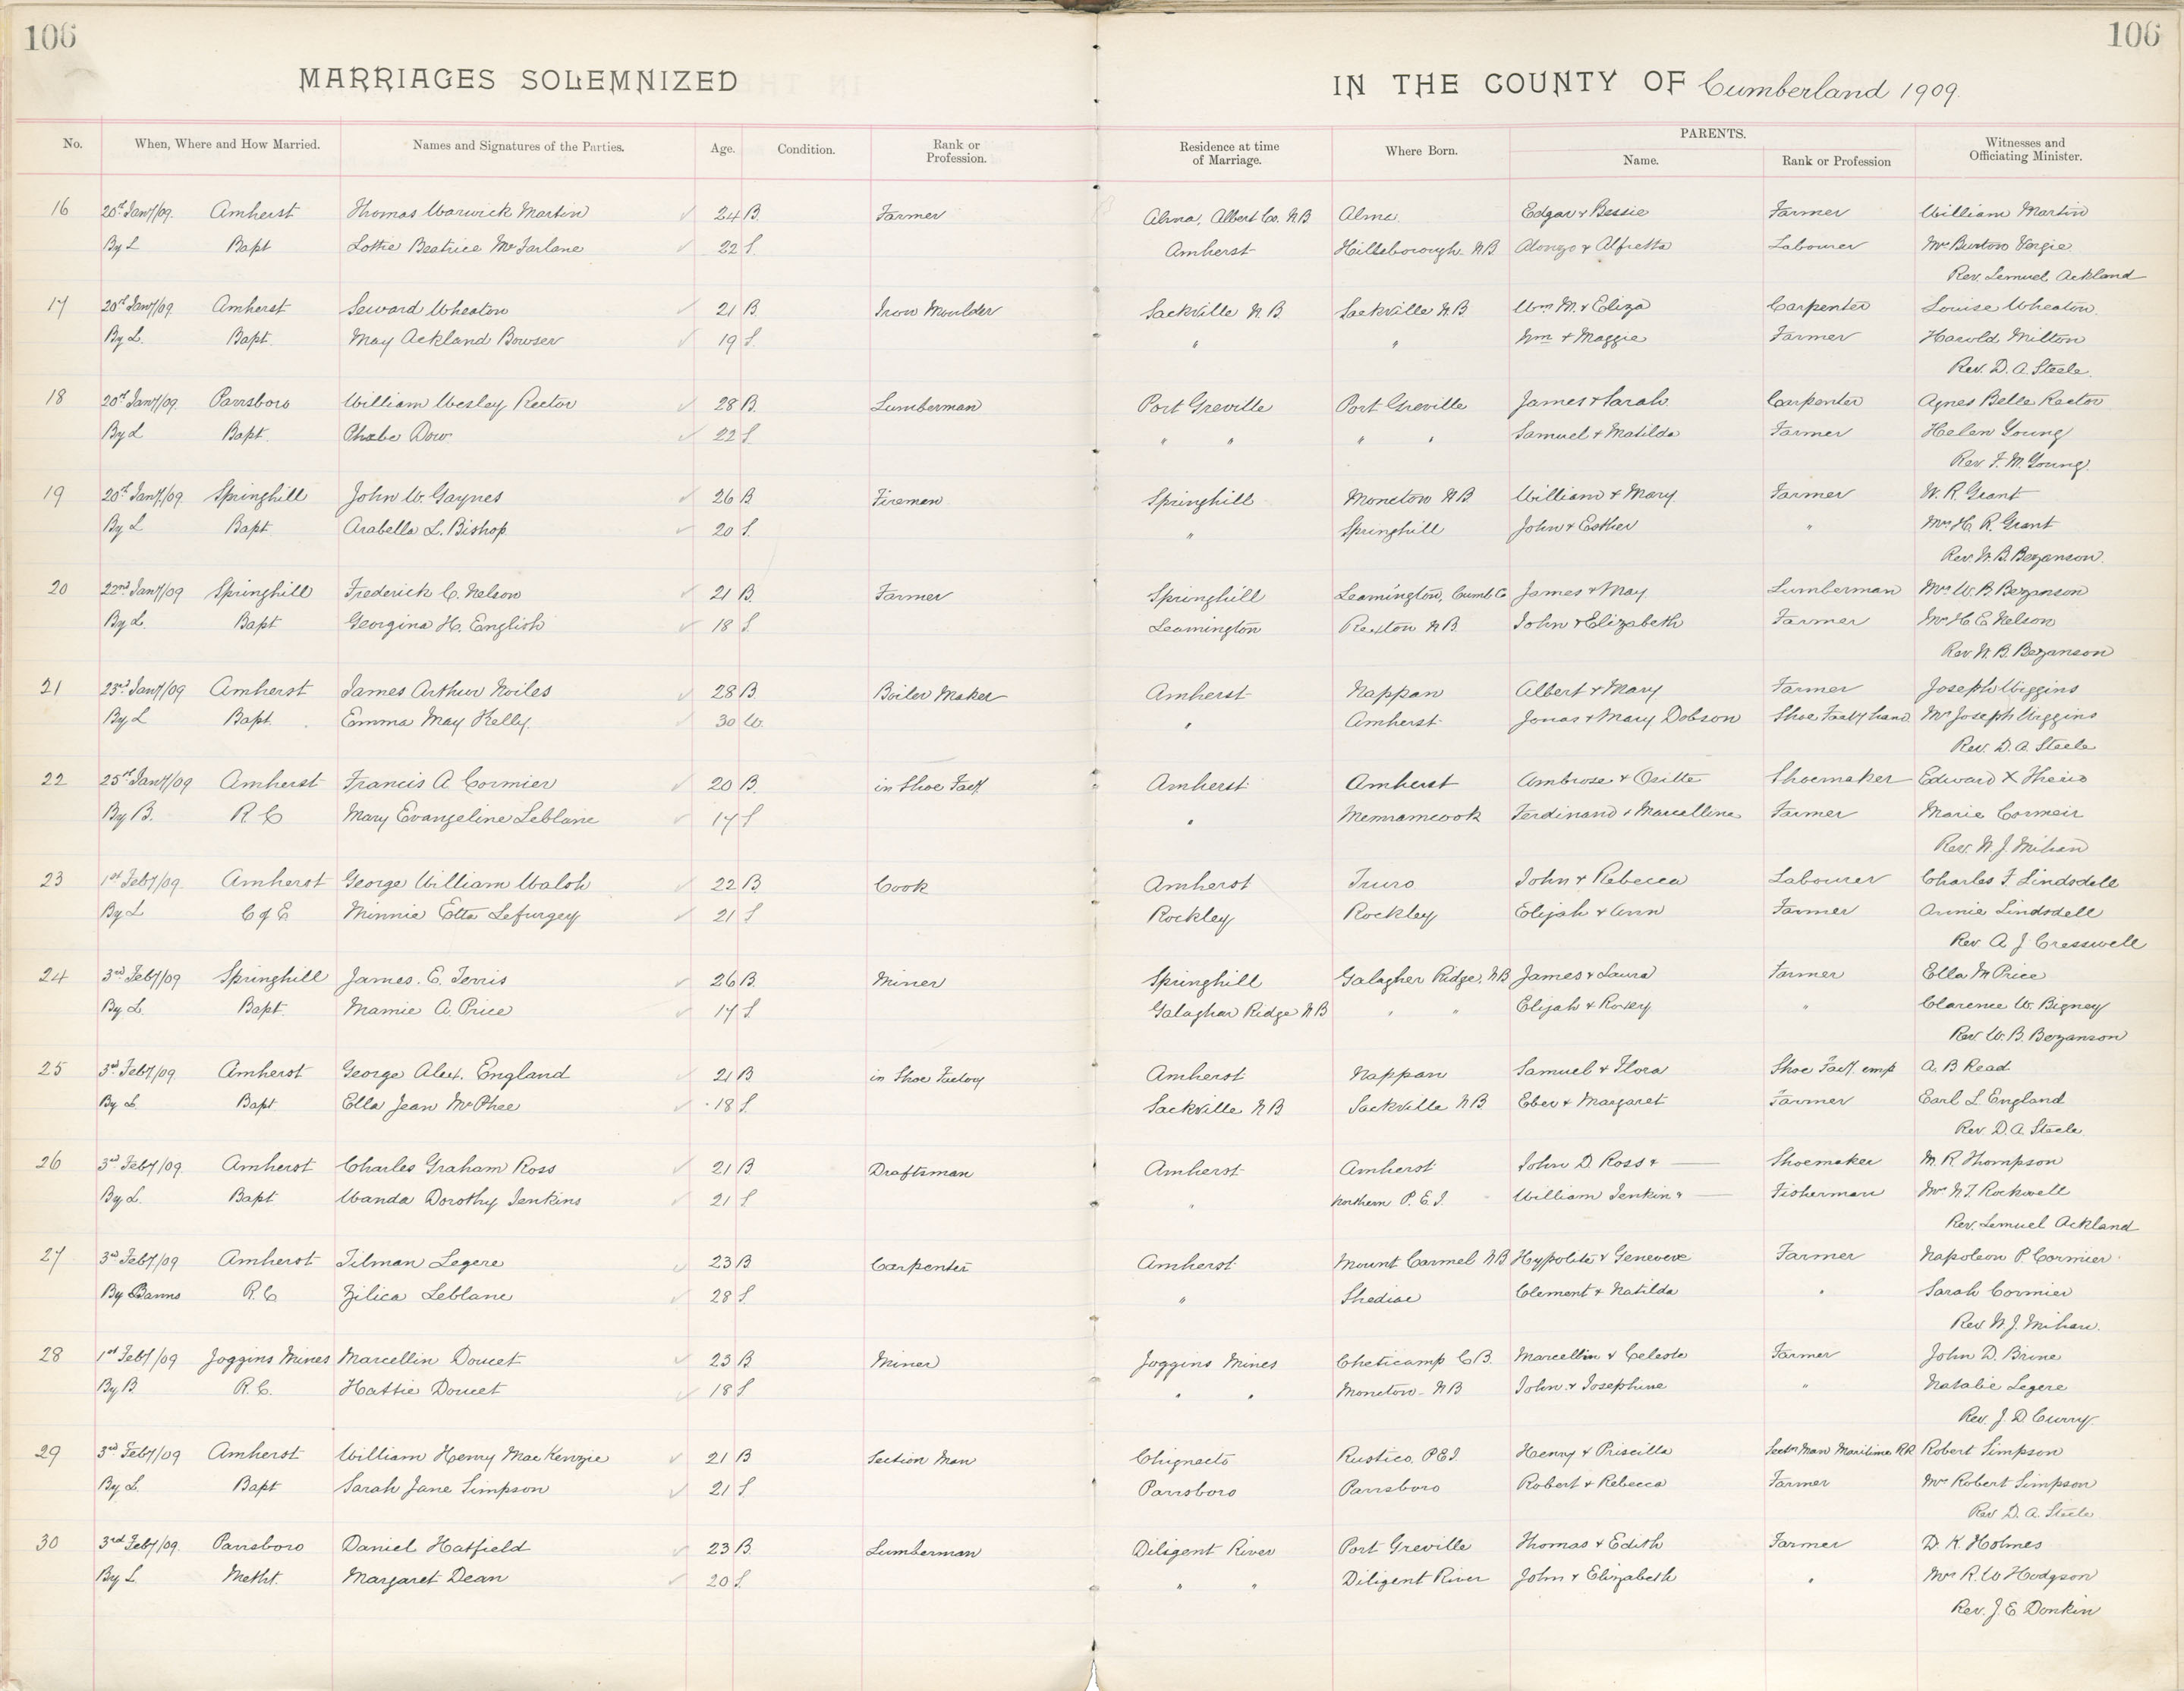 106 106
MARRIAGES SOLEMNIZED IN THE COUNTY OF Cumberland 1909.
PARENTS.
No. When, Where and How Married. Names and Signatures of the Parties. Age. Condition. Rank or Profession. Residence at time of Marriage. Where Born. Name. Rank or Profession Witnesses and Officiating Minister.
16 20th Jany/09. Amherst Thomas Warwick Martin 24 B. Farmer Alma, Albert Co. N.B. Alma. Edgar & Bessie Farmer William Martin
By L Bapt Lottie Beatrice McFarlane 22 S. Amherst Hillsborough N.B. Alonzo & Alfretta Labourer Mrs Burton Vergie
Rev. Lemuel Ackland
17 20th Jany/09 Amherst Seward Wheaton 21 B. Iron Moulder Sackville N.B. Sackville N.B. Wm M. & Eliza Carpenter Louise Wheaton.
By L. Bapt. May Ackland Bowser 19 S. " " Wm & Maggie Farmer Harold Milton
Rev. D. A. Steele.
18 20th Jany/09. Parrsboro William Wesley Rector 28 B. Lumberman Port Greville Port Greville James & Sarah Carpenter Agnes Belle Rector
By L Bapt. Phoebe Dow. 22 S. " " " " Samuel & Matilda Farmer Helen Young
Rev. F. M. Young.
19 20th Jany/09 Springhill John W. Gaynes 26 B Fireman Springhill Moncton N.B William & Mary Farmer W. R. Grant
By L Bapt. Arabella L. Bishop 20 S. " Springhill John & Esther " Mrs H. R. Grant
Rev. W. B. Bezanson.
20 22nd Jany/09 Springhill Frederick C. Nelson 21 B. Farmer Springhill Leamington, Cumb Co James & May Lumberman Mrs W. B. Bezanson
By L. Bapt Georgina H. English 18 S. Leamington Rexton N.B. John & Elizabeth Farmer Mrs H E Nelson
Rev. W. B. Bezanson
21 23rd Jany/09 Amherst James Arthur Noiles 28 B Boiler Maker Amherst Nappan Albert & Mary Farmer Joseph Wiggins
By L Bapt. Emma May Kelly. 30 W. " Amherst Jonas & Mary Dobson Shoe Facty hand Mrs Joseph Wiggins
Rev. D. A. Steele
22 25th Jany/09 Amherst Francis A. Cormier 20 B. in Shoe Facty Amherst Amherst Ambrose & Ositte Shoemaker Edward X
By B. R. C Mary Evangeline Leblanc 17 S " Memramcook Ferdinand & Marcelline Farmer Marie Cormeir
Rev. W. J. Mihan
23 1st Feby/09. Amherst George William Walsh 22 B Cook Amherst Truro John & Rebecca Labourer Charles F. Lindsdell
By L C of E Minnie Etta Lefurgey 21 S Rockley Rockley Elijah & Ann Farmer Annie Lindsdell
Rev A. J Cresswell
24 3rd Feby/09 Springhill James. E. Terris 26 B. Miner Springhill Galagher Ridge, N.B James & Laura Farmer Ella M Price
By L. Bapt. Mamie A. Price 17 S. Galaghar Ridge N.B " " Elijah & Roxey " Clarence W. Bigney
Rev. W. B. Bezanson
25 3rd Feby/09 Amherst George Alex. England 21 B in Shoe Factory Amherst Nappan Samuel & Flora Shoe Facty. emp A. B Read
By L Bapt Ella Jean McPhee 18 S. Sackville N.B Sackville N.B. Eber & Margaret Farmer Earl L. England
Rev. D. A. Steele.
26 3rd Feby/09. Amherst Charles Graham Ross 21 B Draftsman Amherst Amherst John D. Ross & — Shoemaker M. R. Thompson
By L. Bapt Wanda Dorothy Jenkins 21 S " Northern P. E. I. William Jenkins — Fisherman Mrs N. T. Rockwell
Rev. Lemuel Ackland
27 3rd Feby/09 Amherst Tilman Legere 23 B Carpenter Amherst Mount Carmel N.B Hypolite & Genevere Farmer Napoleon P. Cormier
By Banns R. C Zilica Leblanc 28 S. " Shediac Clement & Natilda " Sarah Cormier
Rev. W. J. Mihan.
28 1st Feby/09 Joggins Mines Marcellin Doucet 23 B Miner Joggins Mines Cheticamp C.B. Marcellin & Celeste Farmer John D. Brine
By B R. C. Hattie Doucet 18 S " " Moncton N.B John & Josephine " Natalie Legere
Rev. J. D. Curry
29 3rd Feby/09 Amherst William Henry MacKenzie 21 B Section Man Chignecto Rustico, P.E.I. Henry & Priscilla Sectn Man Maritime R.R Robert Simpson
By L. Bapt Sarah Jane Simpson 21 S. Parrsboro Parrsboro Robert & Rebecca Farmer Mrs Robert Simpson
Rev D. A. Steele.
30 3rd Feby/09. Parrsboro Daniel Hatfield 23 B. Lumberman Diligent River Port Greville Thomas & Edith Farmer D. K. Holmes
By L Metht. Margaret Dean 20 S. " " Diligent River John & Elizabeth " Mrs R. W Hodgson
Rev. J. E. Donkin